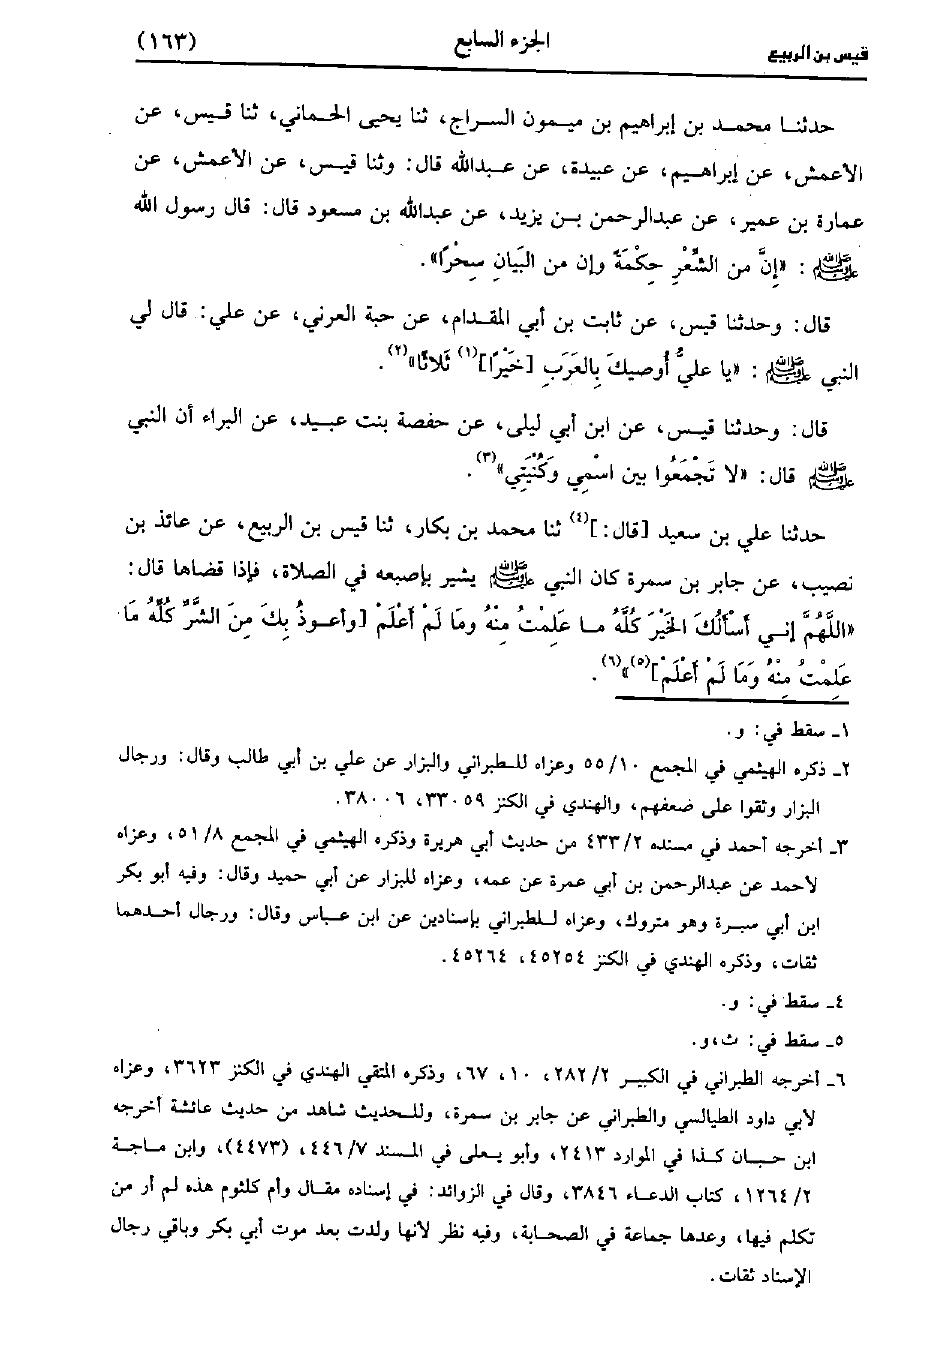 قيس بن الربيع الجزء السابع (١٦٣)
حدثنا محمد بن إبراهيم بن ميمون السراج، ثنا يحيى الحماني، ثنا قيس، عن
الأعمش، عن إبراهيم، عن عبيدة، عن عبدالله قال: وثنا قيس، عن الأعمش، عن
عمارة بن عمير، عن عبدالرحمن بن يزيد، عن عبدالله بن مسعود قال: قال رسول الله
ﷺ: «إِنَّ من الشِّعْرِ حِكْمَةً وإن من البَيَانِ سِحْرًا».
قال: وحدثنا قيس، عن ثابت بن أبي المقدام، عن حبة العرني، عن علي: قال لي
النبي ﷺ: «يا عليُّ أُوصيكَ بِالعَرَبِ [خَيْرًا](١) ثَلَاثًا»(٢).
قال: وحدثنا قيس، عن ابن أبي ليلى، عن حفصة بنت عبيد، عن البراء أن النبي
ﷺ قال: «لا تَجْمَعُوا بين اسْمِي وَكُنْيَتِي»(٣).
حدثنا علي بن سعيد [قال:](٤) ثنا محمد بن بكار، ثنا قيس بن الربيع، عن عائذ بن
نصيب، عن جابر بن سمرة كان النبي ﷺ يشير بإصبعه في الصلاة، فإذا قضاها قال:
«اللَّهُمَّ إنـي أَسْأَلُكَ الخَيْرَ كُلَّهُ مـا عَلِمْتُ مِنْهُ وما لَمْ أعْلَم [وأعـوذُ بِكَ مِنَ الشَّرِّ كُلِّهُ مَا
عَلِمْتُ مِنْهُ وَمَا لَمْ أَعْلَمْ](٥)»(٦).
١ـ سقط في: و.
٢ـ ذكره الهيثمي في المجمع ١٠/ ٥٥ وعزاه للطبراني والبزار عن علي بن أبي طالب وقال: ورجال
البزار وثقوا على ضعفهم، والهندي في الكنز ٣٣٠٥٩، ٣٨٠٠٦.
٣ـ أخرجه أحمد في مسنده ٢/ ٤٣٣ من حديث أبي هريرة وذكره الهيثمي في المجمع ٨/ ٥١، وعزاه
لأحمد عن عبدالرحمن بن أبي عمرة عن عمه، وعزاه للبزار عن أبي حميد وقال: وفيه أبو بكر
ابن أبي سبرة وهو متروك، وعزاه للطبراني بإسنادين عن ابن عباس وقال: ورجال أحدهما
ثقات، وذكره الهندي في الكنز ٤٥٢٥٤، ٤٥٢٦٤.
٤ـ سقط في: و.
٥ـ سقط في: ث، و.
٦ـ أخرجه الطبراني في الكبير ٢/ ٢٨٢، ١٠، ٦٧، وذكره المتقي الهندي في الكنز ٣٦٢٣، وعزاه
لأبي داود الطيالسي والطبراني عن جابر بن سمرة، وللحديث شاهد من حديث عائشة أخرجه
ابن حبان كذا في الموارد ٢٤١٣، وأبو يعلى في المسند ٧/ ٤٤٦، (٤٤٧٣)، وابن ماجة
٢/ ١٢٦٤، كتاب الدعاء ٣٨٤٦، وقال في الزوائد: في إسناده مقال وأم كلثوم هذه لم أر من
تكلم فيها، وعدها جماعة في الصحابة، وفيه نظر لأنها ولدت بعد موت أبي بكر وباقي رجال
الإسناد ثقات.